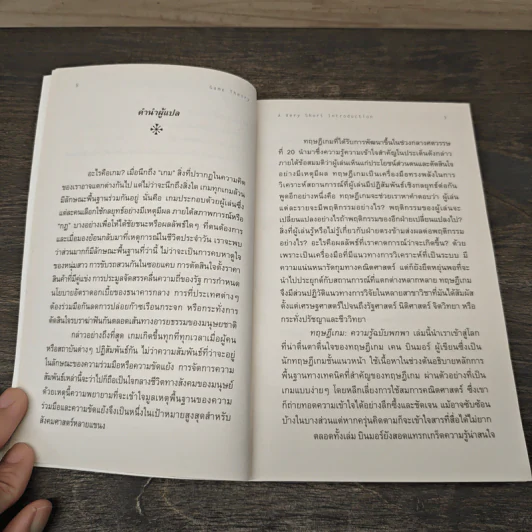 Game Theory
คำนำผู้แปล
อะไรคือเกม? เมื่อนึกถึง "เกม" สิ่งที่ปรากฏในความคิด
ของเราอาจแตกต่างกันไป แต่ไม่ว่าจะนึกถึงสิ่งใด เกมทุกเกมล้วน
มีลักษณะพื้นฐานร่วมกันอยู่ นั่นคือ เกมประกอบด้วยผู้เล่นซึ่ง
แต่ละคนเลือกใช้กลยุทธ์อย่างมีเหตุมีผล ภายใต้สภาพการณ์หรือ
"กฎ" บางอย่างเพื่อให้ได้ชัยชนะหรือผลลัพธ์ใดๆ ที่ตนต้องการ
และเมื่อมองย้อนกลับมาที่เหตุการณ์ในชีวิตประจำวัน เราจะพบ
ว่าส่วนมากก็มีลักษณะพื้นฐานที่ว่านี้ ไม่ว่าจะเป็นการคบหาดูใจ
ของหนุ่มสาว การขับรถสวนกันในซอยแคบ การตัดสินใจตั้งราคา
สินค้าที่มีคู่แข่ง การประมูลจัดสรรคลื่นความถี่ของรัฐ การกำหนด
นโยบายอัตราดอกเบี้ยของธนาคารกลาง การที่ประเทศต่างๆ
ต้องร่วมมือกันลดการปล่อยก๊าซเรือนกระจก หรือกระทั่งการ
ตัดสินใจรบราฆ่าฟันกันตลอดเส้นทางอารยธรรมของมนุษยชาติ
กล่าวอย่างถึงที่สุด เกมเกิดขึ้นทุกที่ทุกเวลาเมื่อผู้คน
หรือสถาบันต่างๆ ปฏิสัมพันธ์กัน ไม่ว่าความสัมพันธ์ที่ว่าจะอยู่
ในลักษณะของความร่วมมือหรือความขัดแย้ง การจัดการความ
สัมพันธ์เหล่านี้จะว่าไปก็ถือเป็นใจกลางชีวิตทางสังคมของมนุษย์
ด้วยเหตุนี้ความพยายามที่จะเข้าใจมูลเหตุพื้นฐานของความ
ร่วมมือและความขัดแย้งจึงเป็นหนึ่งในเป้าหมายสูงสุดสำหรับ
สังคมศาสตร์หลายแขนง
A Very Short Introduction
ทฤษฎีเกมที่ได้รับการพัฒนาขึ้นในช่วงกลางศตวรรษ
ที่ 20 นำมาซึ่งความรู้ความเข้าใจสำคัญในประเด็นดังกล่าว
ภายใต้ข้อสมมติว่าผู้เล่นเห็นแก่ประโยชน์ส่วนตนและตัดสินใจ
อย่างมีเหตุมีผล ทฤษฎีเกมเป็นเครื่องมือทรงพลังในการ
วิเคราะห์สถานการณ์ที่ผู้เล่นมีปฏิสัมพันธ์เชิงกลยุทธ์ต่อกัน
พูดอีกอย่างหนึ่งคือ ทฤษฎีเกมจะช่วยเราหาคำตอบว่า ผู้เล่น
แต่ละรายจะมีพฤติกรรมอย่างไร? พฤติกรรมของผู้เล่นจะ
เปลี่ยนแปลงอย่างไรถ้าพฤติกรรมของอีกฝ่ายเปลี่ยนแปลงไป?
สิ่งที่ผู้เล่นรู้หรือไม่รู้เกี่ยวกับฝ่ายตรงข้ามส่งผลต่อพฤติกรรม
อย่างไร? อะไรคือผลลัพธ์ที่เราคาดการณ์ว่าจะเกิดขึ้น? ด้วย
เพราะเป็นเครื่องมือที่มีแนวทางการวิเคราะห์ที่เป็นระบบ มี
ความแน่นหนารัดกุมทางคณิตศาสตร์ แต่ก็ยังยืดหยุ่นพอที่จะ
นำไปประยุกต์กับสถานการณ์ที่แตกต่างหลากหลาย ทฤษฎีเกม
จึงมีส่วนปฏิวัติแนวทางการวิจัยในหลายสาขาวิชาที่มันได้สัมผัส
ตั้งแต่เศรษฐศาสตร์ไปจนถึงรัฐศาสตร์ นิติศาสตร์ จิตวิทยา หรือ
กระทั่งปรัชญาและชีววิทยา
ทฤษฎีเกม: ความรู้ฉบับพกพา เล่มนี้นำเราเข้าสู่โลก
ที่น่าตื่นตาตื่นใจของทฤษฎีเกม เคน บินมอร์ ผู้เขียนซึ่งเป็น
นักทฤษฎีเกมชั้นแนวหน้า ใช้เนื้อหาในช่วงต้นอธิบายหลักการ
พื้นฐานทางเทคนิคที่สำคัญของทฤษฎีเกม ผ่านตัวอย่างที่เป็น
เกมแบบง่ายๆ โดยหลีกเลี่ยงการใช้สมการคณิตศาสตร์ ซึ่งเขา
ก็ถ่ายทอดความเข้าใจได้อย่างลึกซึ้งและชัดเจน แม้อาจซับซ้อน
บ้างในบางส่วนแต่หากครุ่นคิดตามก็จะเข้าใจสารที่สื่อได้ไม่ยาก
ตลอดทั้งเล่ม บินมอร์ยังสอดแทรกเกร็ดความรู้น่าสนใจ